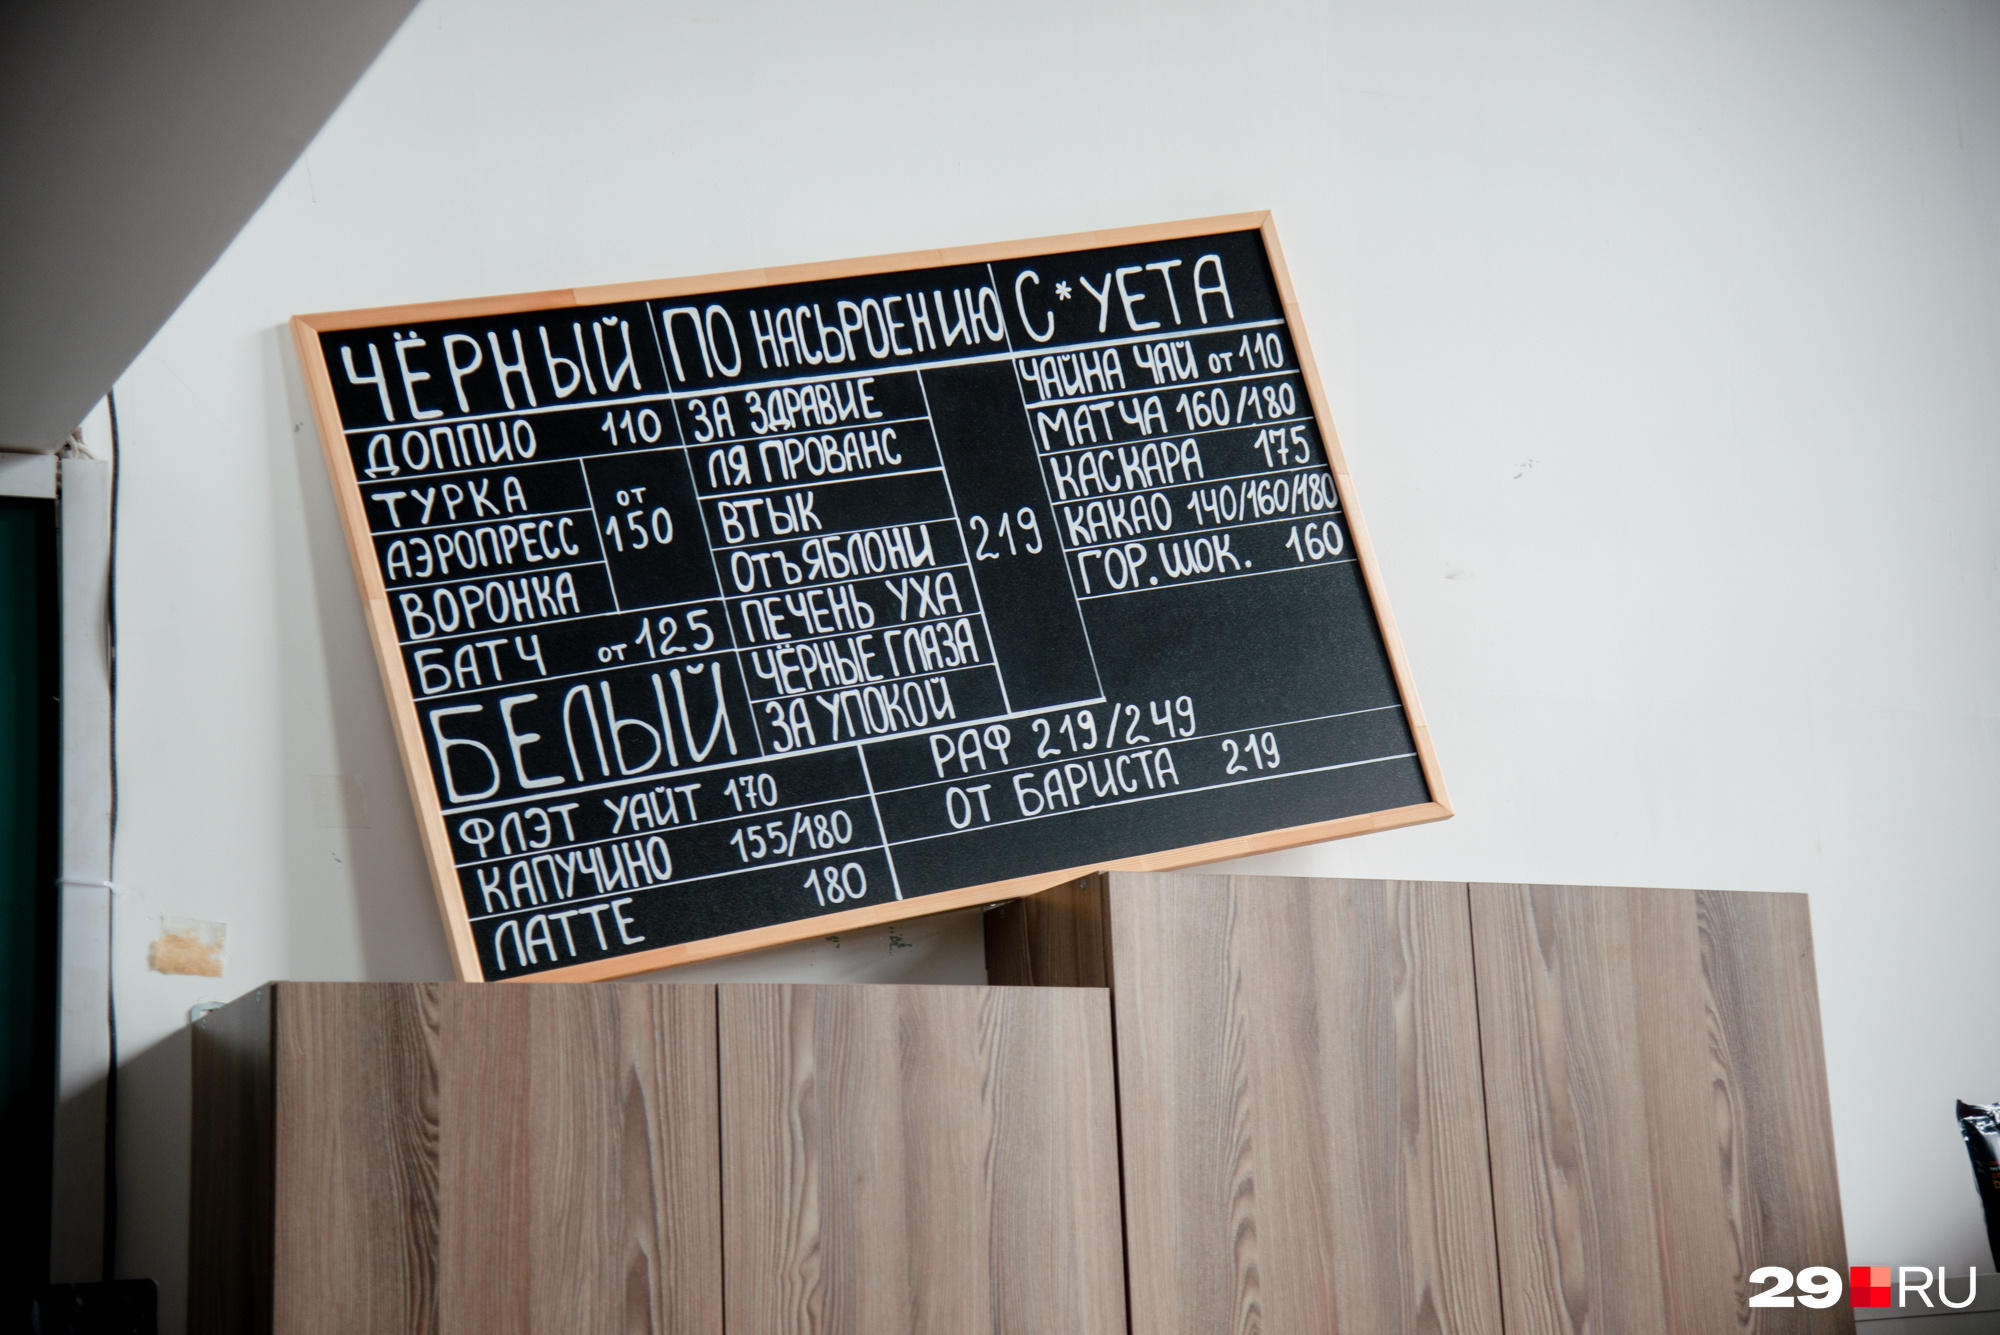 ЧЁРНЫЙ
ДОППИО 110
ТУРКА
АЭРОПРЕСС
ВОРОНКА
от 150
БАТЧ от 125
БЕЛЫЙ
ФЛЭТ УАЙТ 170
КАПУЧИНО 155/180
ЛАТТЕ 180
ПО НАСЬРОЕНИЮ
ЗА ЗДРАВИЕ
ЛЯ ПРОВАНС
ВТЫК
ОТЪЯБЛОНИ
ПЕЧЕНЬ УХА
ЧЁРНЫЕ ГЛАЗА
ЗА УПОКОЙ
219
С*УЕТА
ЧАЙНА ЧАЙ от 110
МАТЧА 160/180
КАСКАРА 175
КАКАО 140/160/180
ГОР. ШОК. 160
РАФ 219/249
ОТ БАРИСТА 219
29 RU